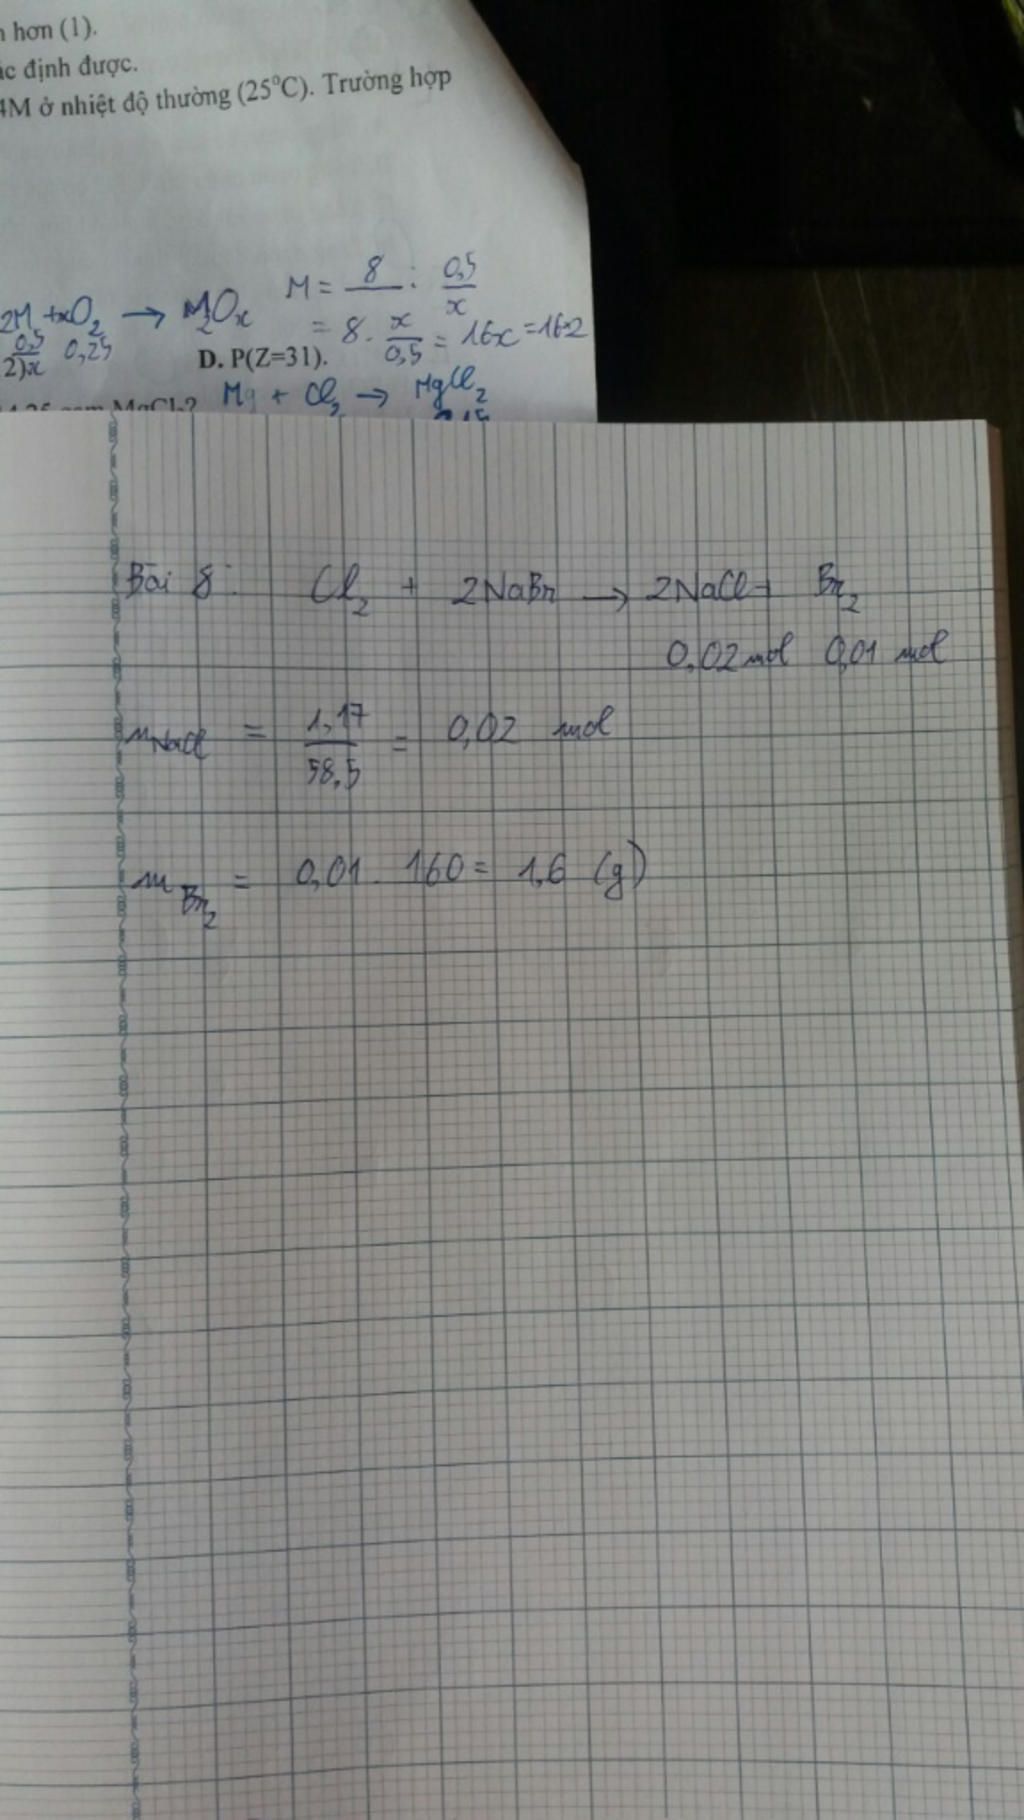 hơn (1).
định được.
4M ở nhiệt độ thường (25°C). Trường hợp
M = 8 : 0,5/x
2M + xO₂ → M₂Oₓ
= 8 . x/0,5 = 16x = 16.2
0,5 0,25
2)x
D. P(Z=31).
Mg + Cl₂ → MgCl₂
MgCl₂?
Bài 8: Cl₂ + 2NaBr → 2NaCl + Br₂
0,02 mol 0,01 mol
nNaCl = 1,17/58,5 = 0,02 mol
mBr₂ = 0,01 . 160 = 1,6 (g)